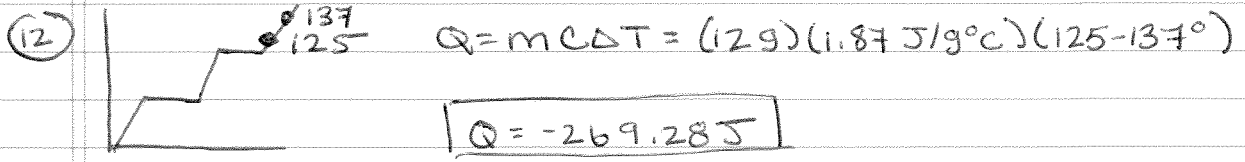 12
137
125
Q=mCΔT=(12g)(1.87 J/g°C)(125-137°)
Q=-269.28J